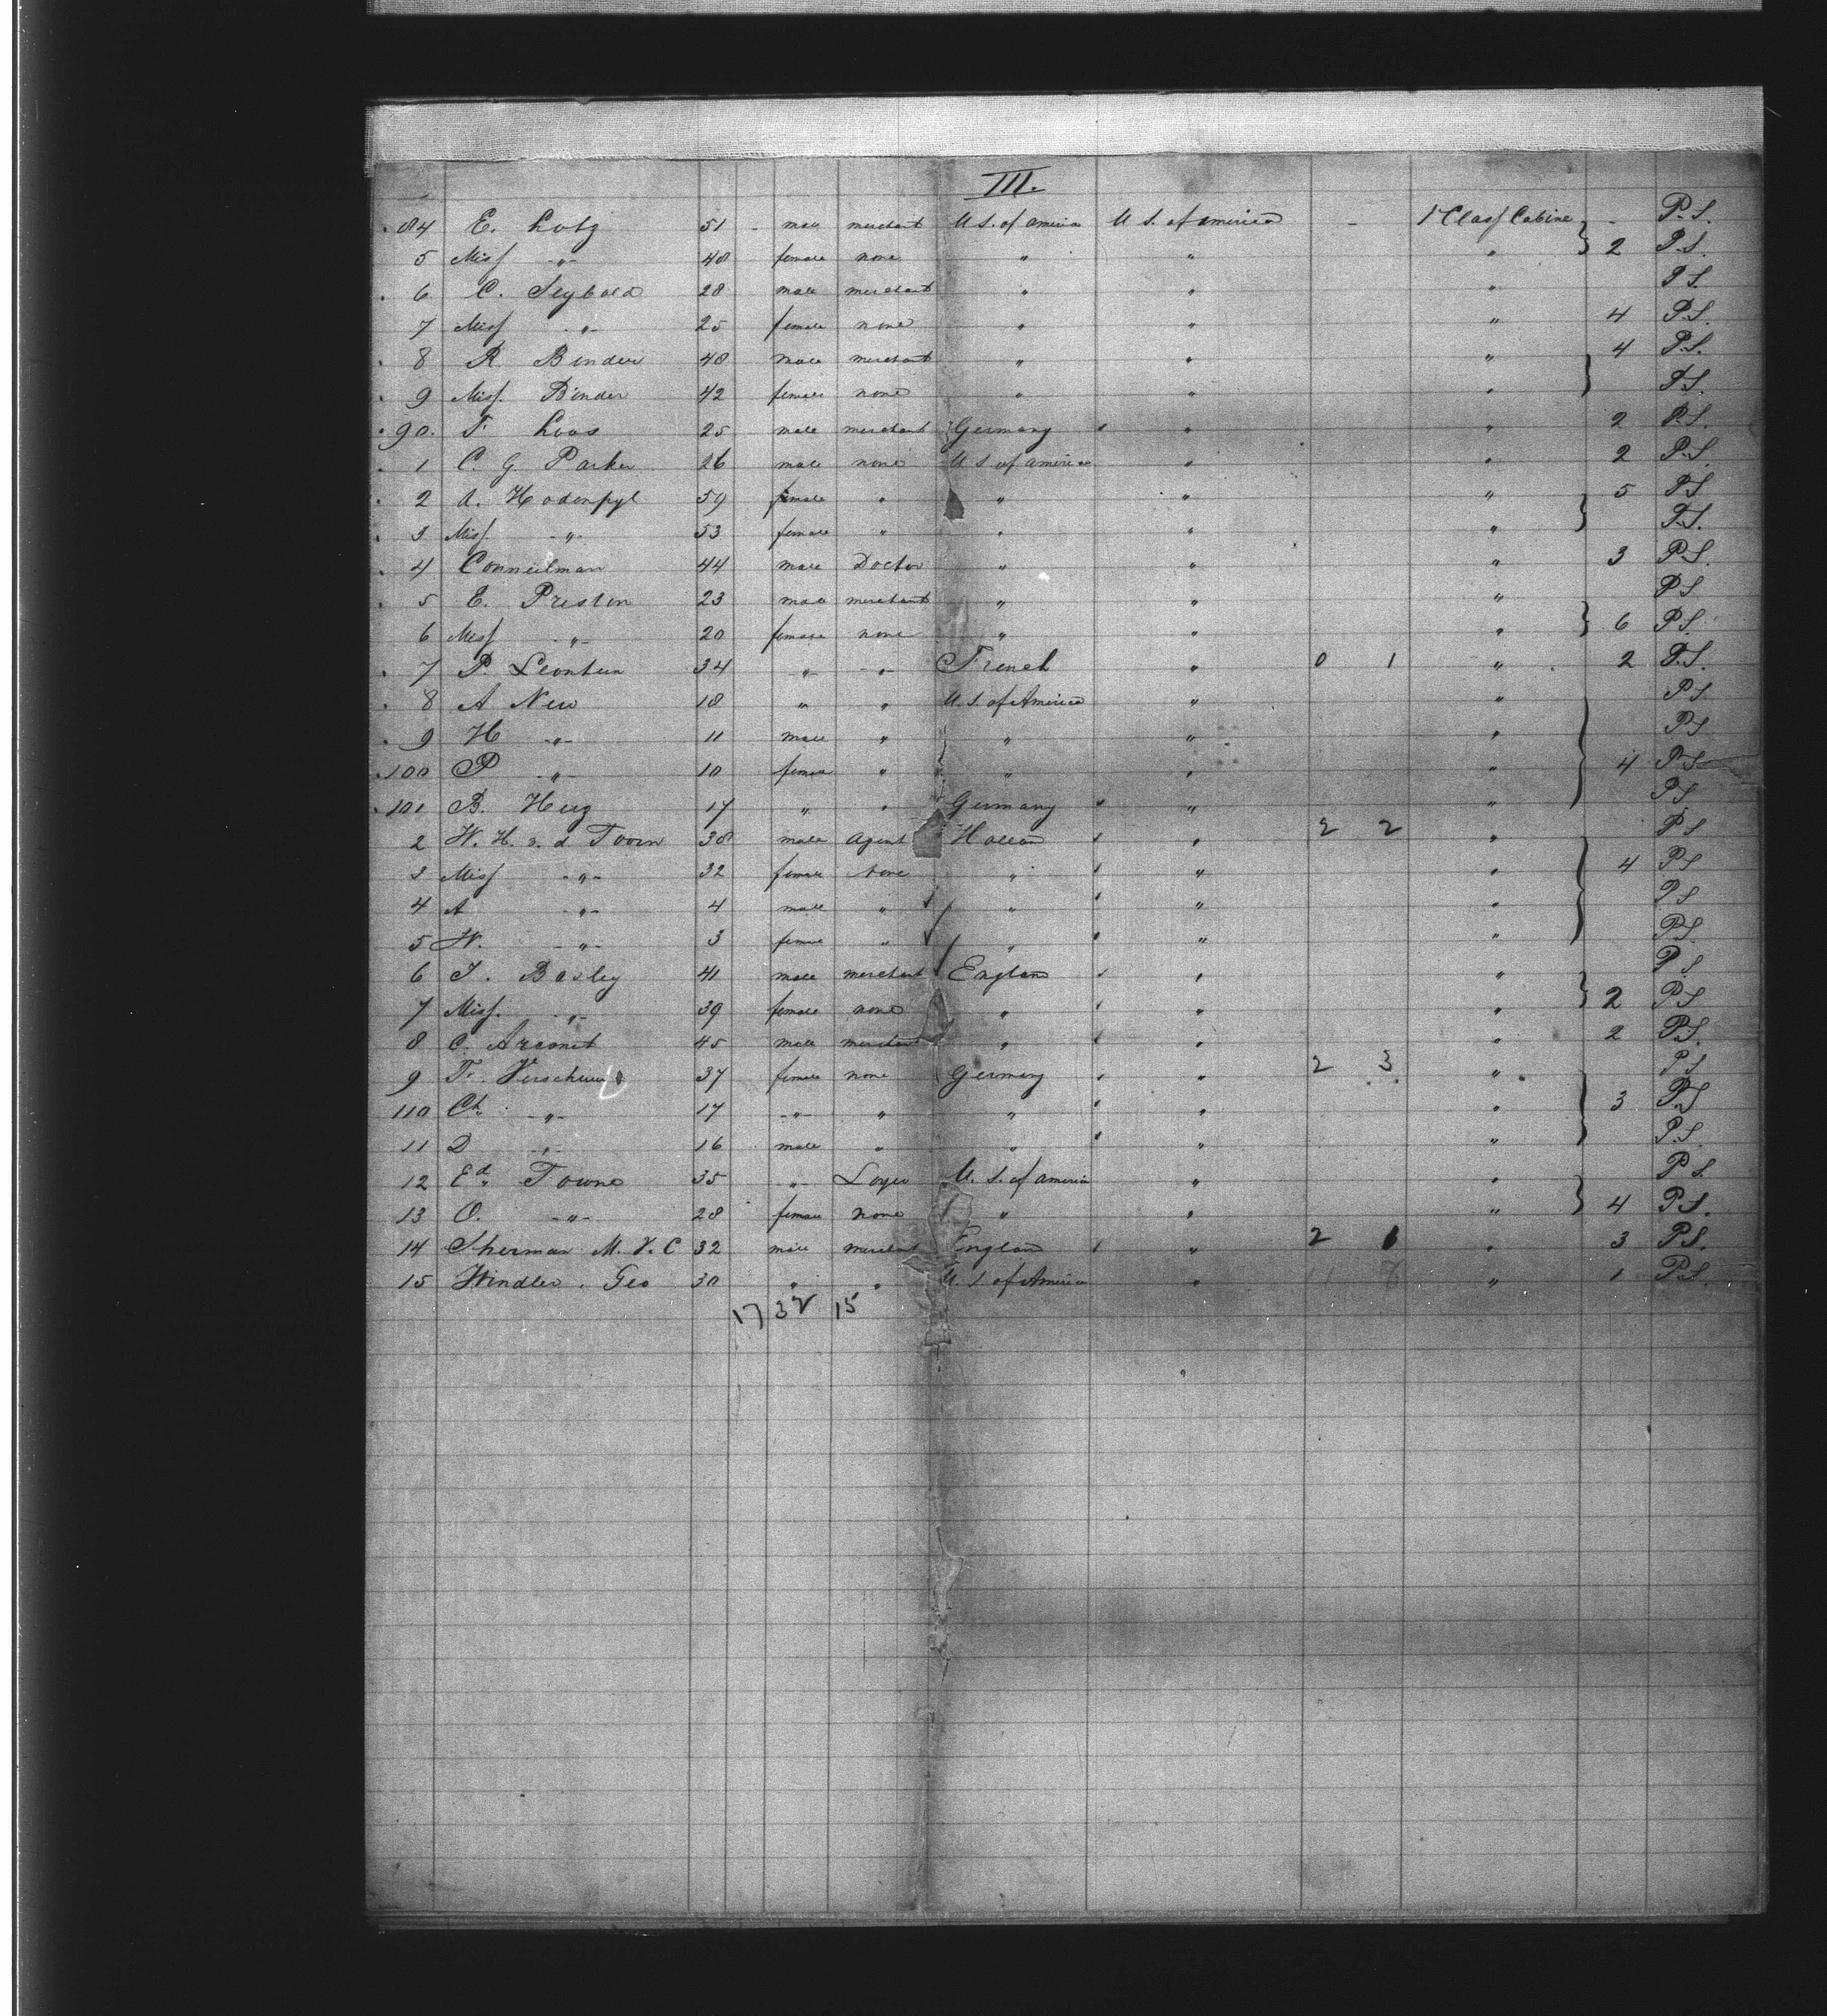 III.
84 E. Lotz 51 - male merchant U.S. of america U S. of america - 1 Class Cabine - P.S.
5 Miss -"- 48 female none " " " } 2 P.S.
6 C. Seybold 28 male merchant " " " P.S.
7 Miss -"- 25 female none " " " 4 P.S.
8 R. Binder 48 male merchant " " " 4 P.S.
9 Miss. Binder 42 female none " " " } P.S.
90. F. Loos 25 male merchant Germany " " 2 P.S.
1 C. G. Parker 26 male none U S. of america " " 2 P.S.
2 A. Hodenpyl 59 female " " " " 5 P.S.
3 Miss. -"- 53 female " " " " } P.S.
4 Conneilman 44 male Doctor " " " 3 P.S.
5 E. Preston 23 male merchant " " " P.S.
6 Miss -"- 20 female none " " " } 6 P.S.
7 P. Leontien 34 -"- -"- French " 0 1 " 2 P.S.
8 A New 18 " " U.S. of America " " P.S.
9 H -"- 11 male " " " " P.S.
100 P -"- 10 female " " " " } 4 P.S.
101 B. Herz 17 " " Germany " " P.S.
2 W. H. v. d Toorn 38 male Agent Holland " 2 2 " P.S.
3 Miss -"- 32 female None " " " } 4 P.S.
4 A -"- 4 male " " " " P.S.
5 W. -"- 3 female " " " " P.S.
6 J. Bosley 41 male merchant England " " P.S.
7 Miss. -"- 39 female none " " " } 2 P.S.
8 C. 45 male merchant " " " 2 P.S.
9 F. 37 female none Germany " 2 3 " P.S.
110 Ch. -"- 17 -"- " " " " } 3 P.S.
11 D -"- 16 male " " " " P.S.
12 Ed. Towne 35 -"- U. S. of america " " P.S.
13 O. -"- 28 female none " " " } 4 P.S.
14 Sherman M. V. C 32 male merchant England " 2 " 3 P.S.
15 Windler. Geo 30 " " U. S. of America " " 1 P.S.
17 32 15